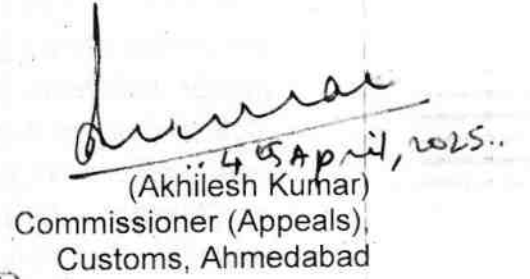 Kumar
4th April, 2025..
(Akhilesh Kumar)
Commissioner (Appeals),
Customs, Ahmedabad